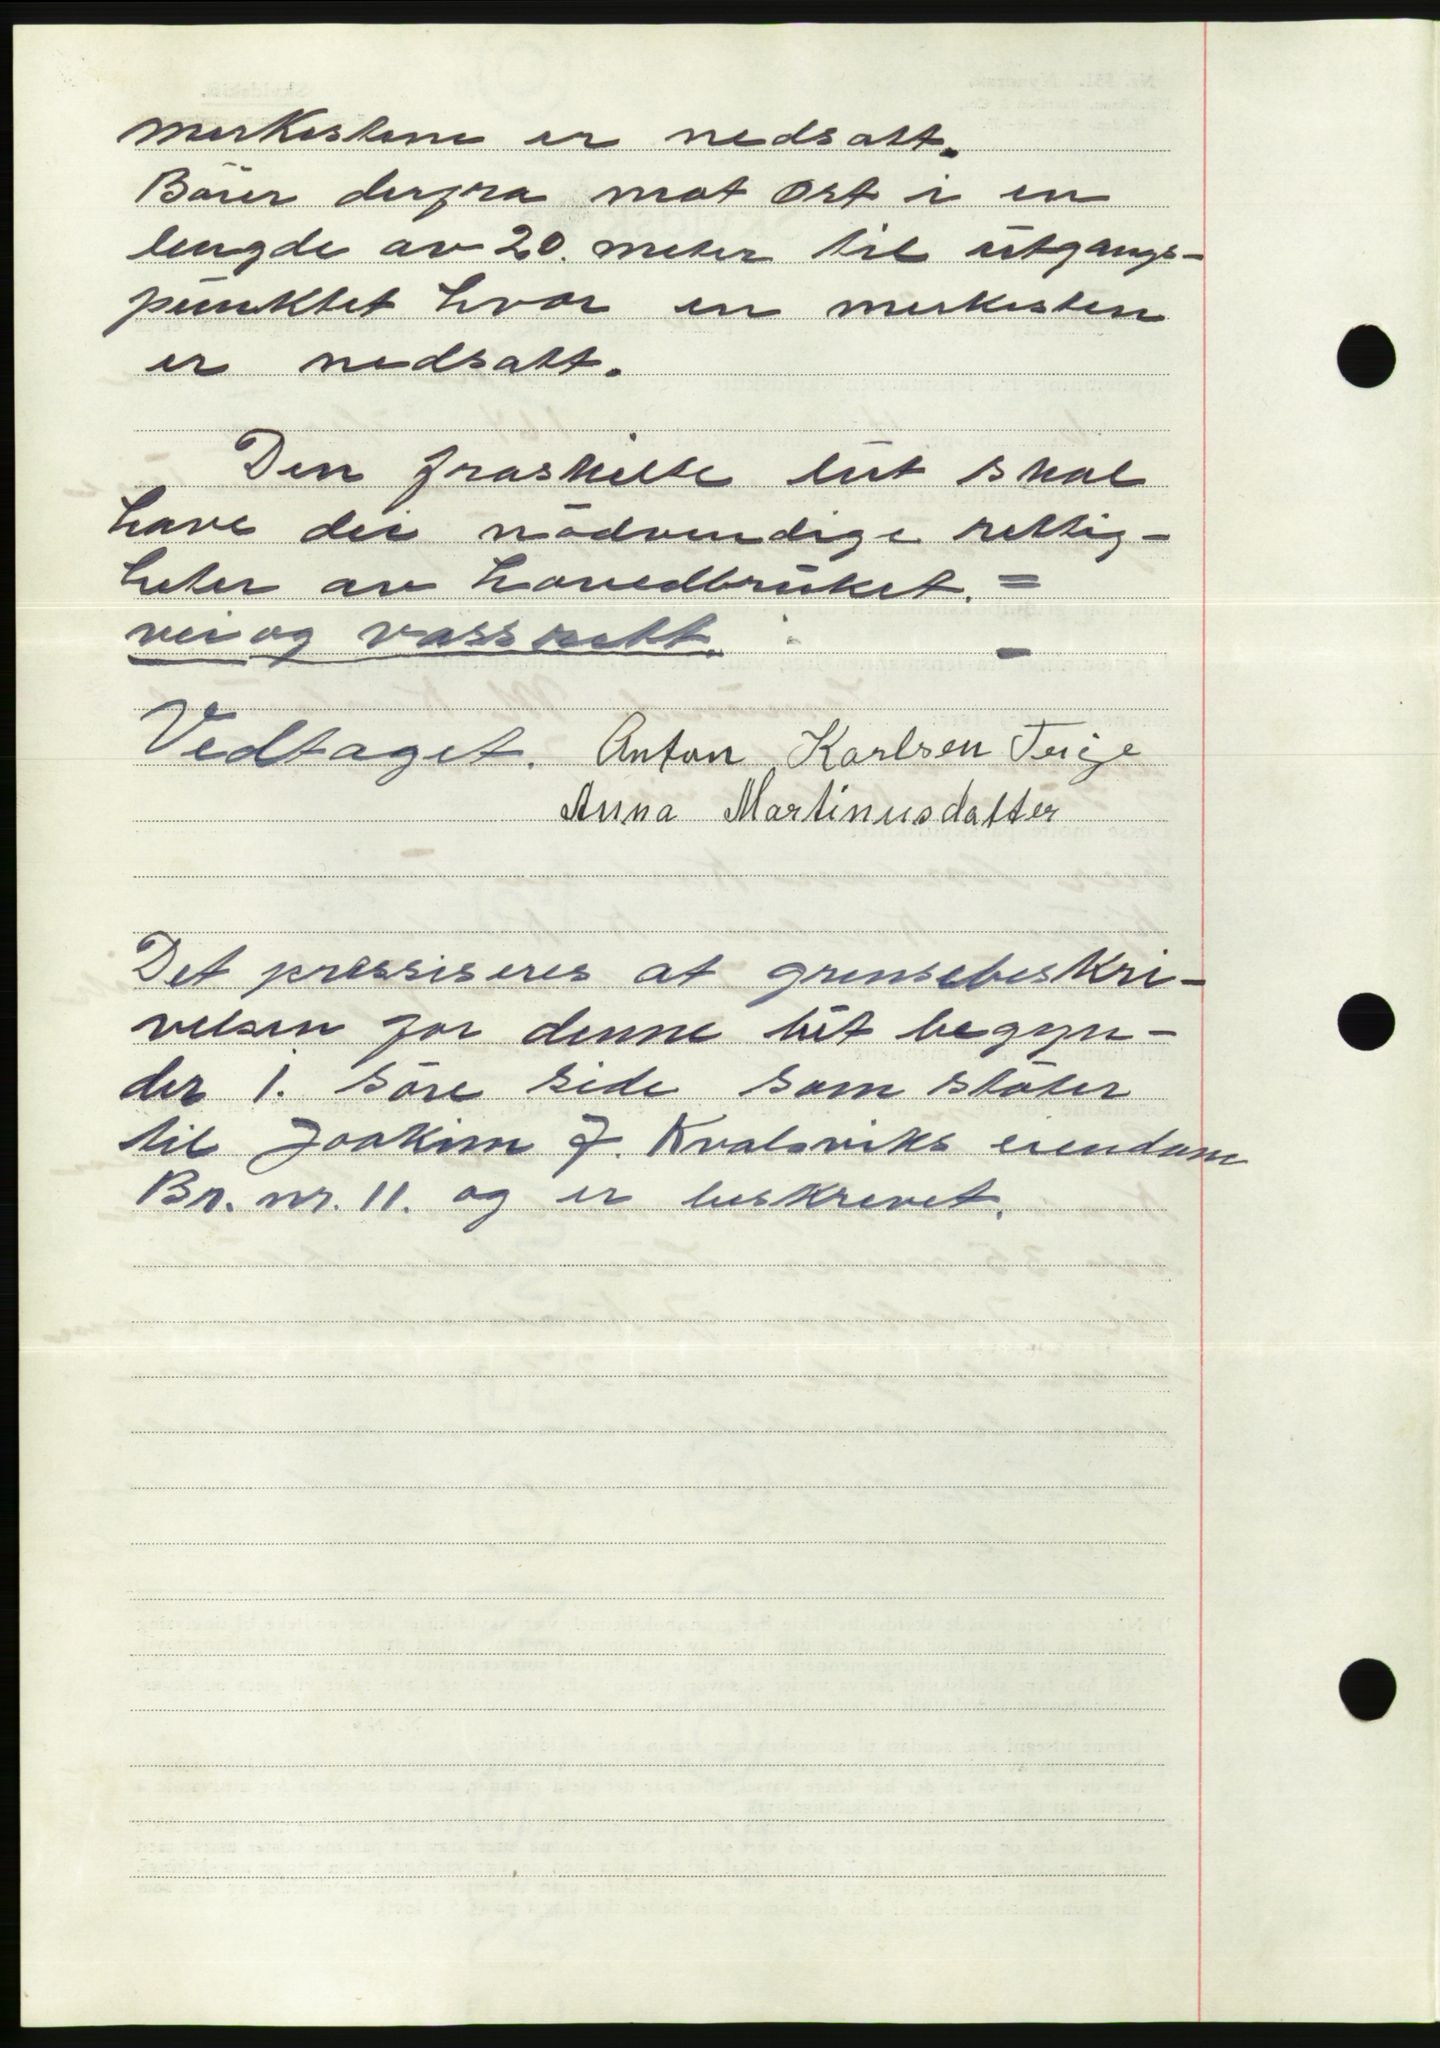 merkestene er nedsatt.
Bärer derfra mot Øst i en
lengde av 20. meter til utgangs-
punktet hvor en merkesten
er nedsatt.
Den fraskilte lut skal
have dei nödvendige rettig-
heter av hovedbruket. =
vei og vassrett. -
Vedtaget. Anton Karlsen Teige
Anna Martinusdatter
Det pressiseres at grensebeskri-
velsen for denne lut begyn-
der i. söre side som stöter
til Joakim J. Kvalsviks eiendom
Br. nr. 11. og er beskrevet.